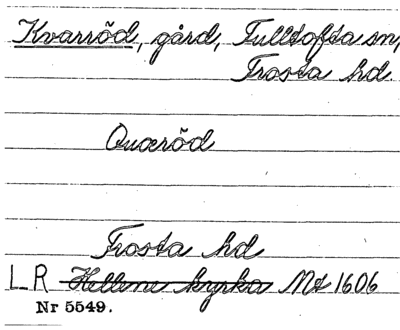 Kvarröd, gård, Fulltofta sn,
Frosta hd.
Quaröd
Frosta hd
LR Hellene kyrka Mt 1606
Nr 5549.